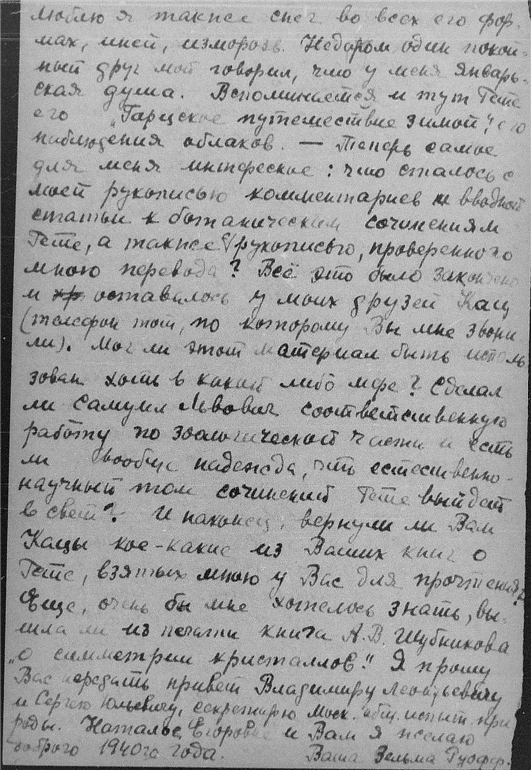 люблю я также снег во всех его фор-
мах, иней, изморозь. Недаром один покой-
ный друг мой говорил, что у меня январь-
ская душа. Вспоминается и тут Гете
его „Гарцское путешествие зимой", его
наблюдения облаков. — Теперь самое
для меня интересное: что сталось с
моей рукописью комментариев и вводной
статьи к ботаническим сочинениям
Гете, а также рукописью, проверенного
мною перевода? Всё это было закончено
и оставалось у моих друзей Кац
(телефон тот, по которому Вы мне звони
ли). Мог ли этот материал быть исполь
зован хоть в какой либо мере? Сделал
ли Самуил Львович соответственную
работу по зоологической части и есть
ли вообще надежда, что естественно-
научный том сочинений Гете выйдет
в свет? И наконец, вернули ли Вам
Кацы кое-какие из Ваших книг о
Гете, взятых мною у Вас для прочтения?
Еще, очень бы мне хотелось знать, вы-
шла ли из печати книга А.В. Шубникова
„о симметрии кристаллов." Я прошу
Вас передать привет Владимиру Леонтьевичу
и Сергею Юльевичу, секретарю Моск. общ. испыт. при
роды. Наталье Егоровне и Вам я желаю
доброго 1940го года. Ваша Зельма